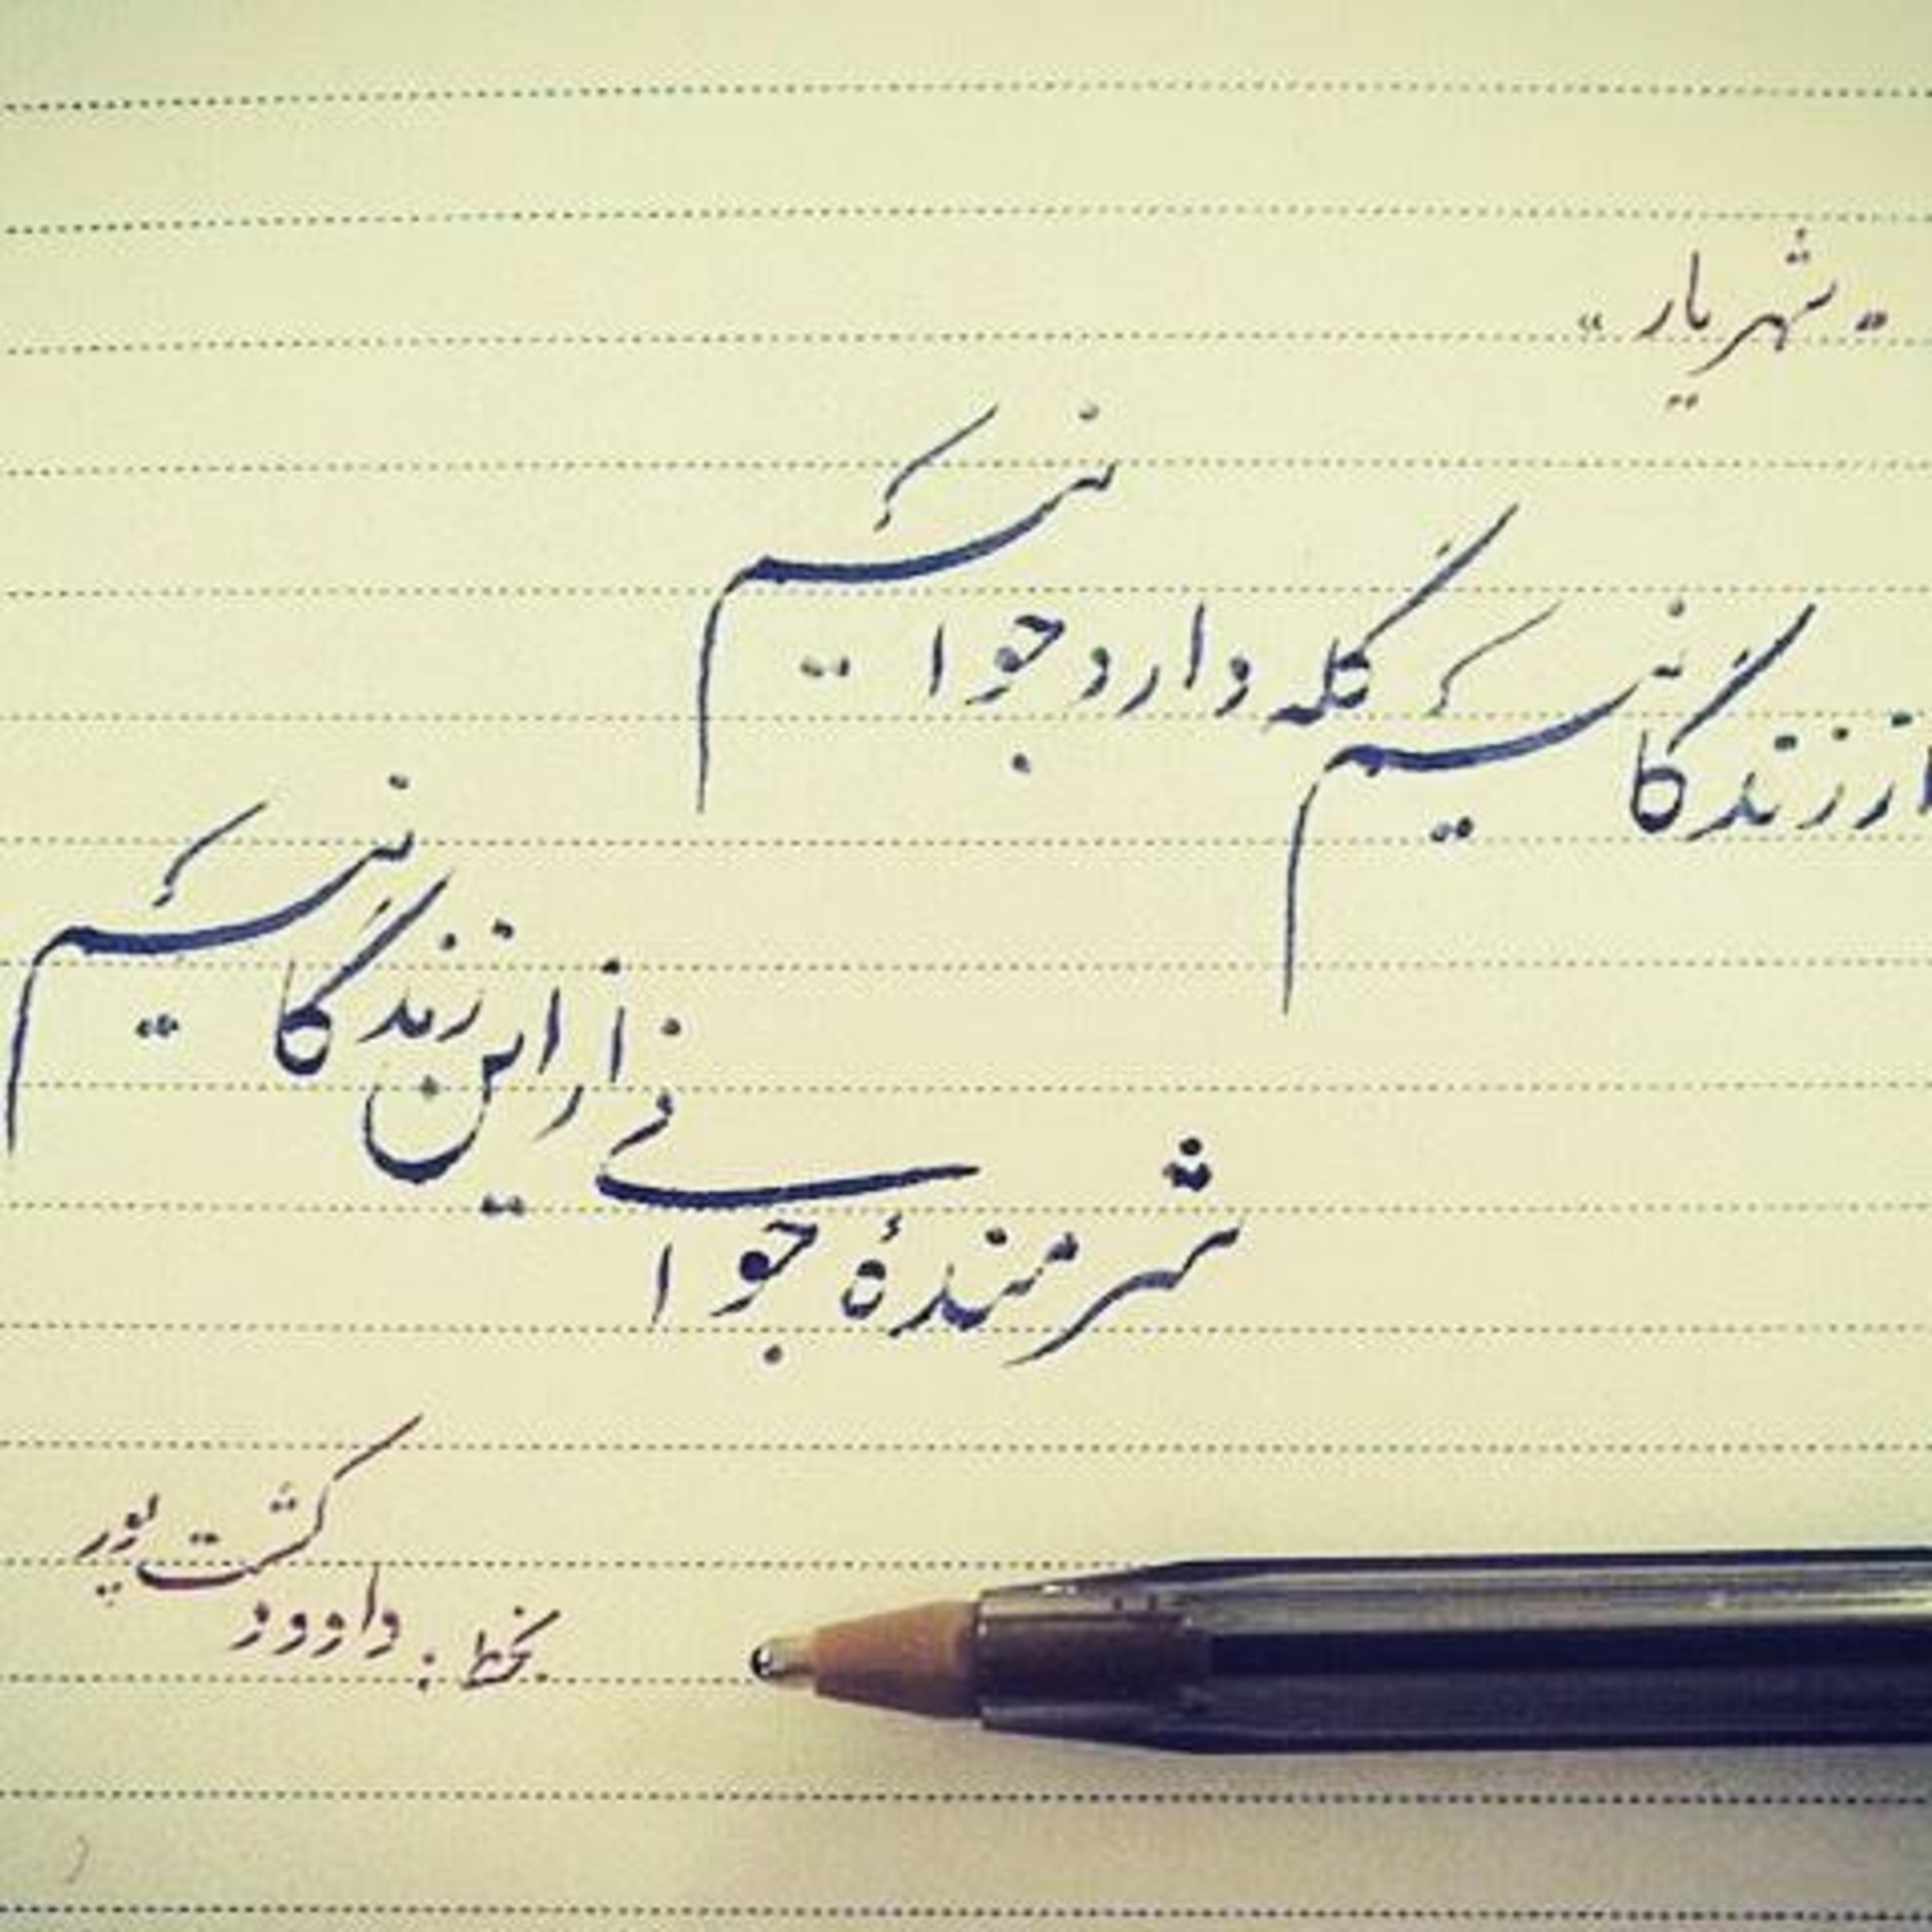 « شهریار »
از زندگانیم گله دارد جوانیم
شرمندهٔ جوانی از این زندگانیم
بخط : داوود کشت پور